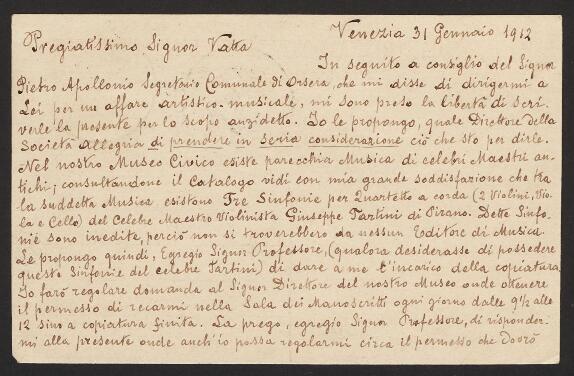 Venezia 31 Gennaio 1912
Pregiatissimo Signor Vatta
In seguito a consiglio del Signor
Pietro Apollonio Segretario Comunale di Orsera, che mi disse di dirigermi a
Lei per un affare artistico-musicale, mi sono preso la libertà di scri-
verle la presente per lo scopo anzidetto. Io le propongo, quale Direttore della
Società Allegria di prendere in seria considerazione ciò che sto per dirle.
Nel nostro Museo Civico esiste parecchia Musica di celebri Maestri an-
tichi; consultandone il Catalogo vidi con mia grande soddisfazione che tra
la suddetta Musica esistono Tre Sinfonie per Quartetto a corda (2 Violini, Vio-
la e Cello) del Celebre Maestro Violinista Giuseppe Tartini di Pirano. Dette Sinfo-
nie sono inedite, perciò non si troverebbero da nessun Editore di Musica.
Le propongo quindi, Egregio Signor Professore, (qualora desiderasse di possedere
queste Sinfonie del celebre Tartini) di dare a me l'incarico della copiatura
Io farò regolare domanda al Signor Direttore del nostro Museo onde ottenere
il permesso di recarmi nella Sala dei Manoscritti ogni giorno dalle 9½ alle
12 sino a copiatura finita. La prego, egregio Signor Professore, di risponder-
mi alla presente onde anch'io possa regolarmi circa il permesso che dovrò